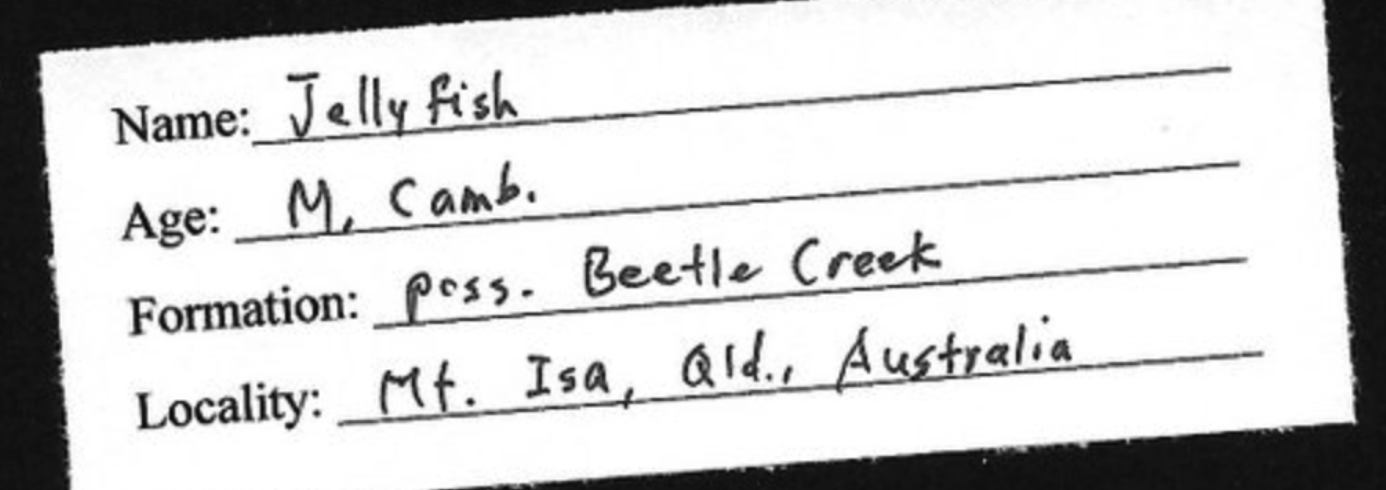 Name: Jellyfish
Age: M. Camb.
Formation: poss. Beetle Creek
Locality: Mt. Isa, Qld., Australia